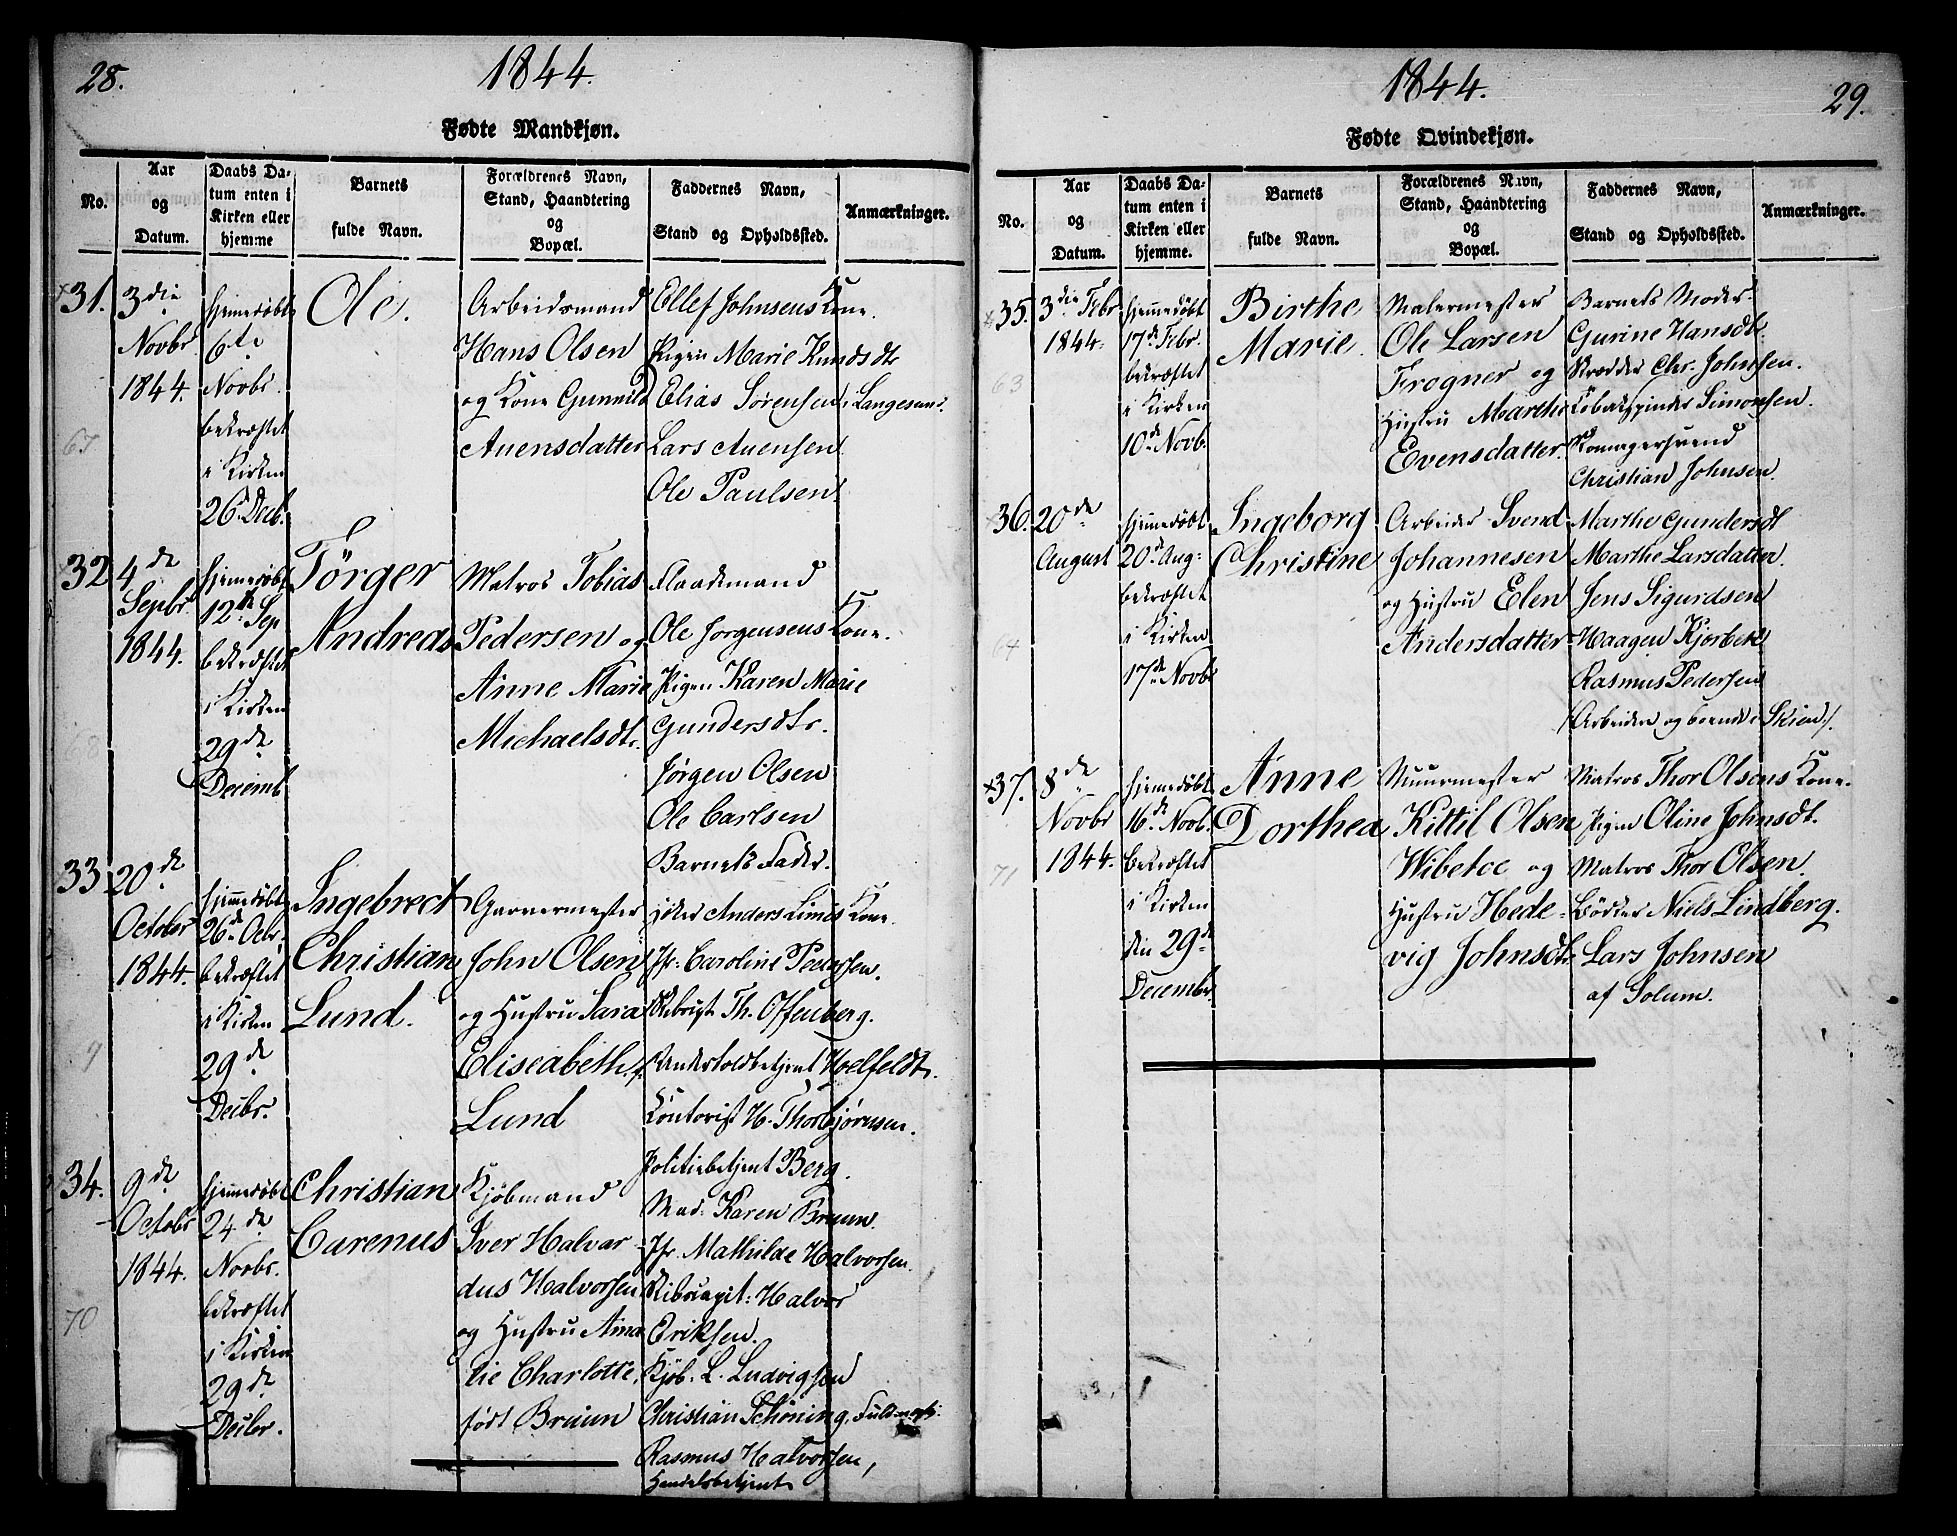 28.
1844.
Fødte Mandkjøn.
No.
Aar
og
Datum.
Daabs Da-
tum enten i
Kirken eller
hjemme
Barnets
fulde Navn.
Forældrenes Navn,
Stand, Haandtering
og
Bopæl.
Faddernes Navn,
Stand og Opholdssted.
Anmærkninger.
31.
3die
Novbr
1844.
hjemedøbt
6te
Novbr.
bekræftet
i Kirken
26. Decb.
Ole.
Arbeidsmand
Hans Olsen
og Kone Gunnild
Auensdatter
Ellef Johnsens Kone.
Pigen Marie Knudsdtr
Elias Sørensen i Langesund.
Lars Auensen
Ole Paulsen
67
32
4de
Sepbr.
1844.
hjemedøbt
12te Sep
bekræftet
i Kirken
29de
Decemb
Törger
Andreas
Matros Tobias
Pedersen og
Anne Marie
Michaelsdtr.
Flaademand
Ole Jorgensens Kone.
Pigen Karen Marie
Gundersdtr.
Jørgen Olsen
Ole Carlsen
Barnets Fader.
68
33
20de
October
1844.
hjemedøbt
26de Octr.
bekræftet
i Kirken
29de
Decbr.
Ingebrect
Christian
Lund.
Garvermester
John Olsen
og Hustru Sara
Eliseabeth f.
Lund
Anders Limis Kone.
Jfr. Caroline Pedersen.
Th. Offenberg.
Undertoldbetjent Hoelfeldt.
Contorist H. Thorbjørnsen.
Politiebetjent Berg.
9
34.
9de
Octobr
1844.
hjemedøbt
24de
Novbr.
bekræftet
i Kirken
29de
Decbr.
Christian
Carenus
Kjøbmand
Iver Halvar
dus Halvorsen
og Hustru Ama
lie Charlotte,
født Bruun
Mad. Karen Bruun.
Jfr. Mathilde Halvorsen.
Skibscapit: Halvor
Eriksen.
Kjøb. L. Ludvigsen
Christian Schöning, Fuldmægt.
Rasmus Halvorsen,
Handelsbetjent
70
29.
1844.
Fødte Qvindekjøn.
No.
Aar
og
Datum.
Daabs Da-
tum enten i
Kirken eller
hjemme.
Barnets
fulde Navn.
Forældrenes Navn,
Stand, Haandtering
og
Bopæl.
Faddernes Navn,
Stand og Opholdssted.
Anmærkninger.
35.
3die Febr
1844.
hjemedøbt
17de Febr.
bekræftet
i Kirken
10de Novb.
Birthe
Marie.
Malermester
Ole Larsen
Frogner og
Hustru Marthe
Evensdatter.
Barnets Moder.
Gurine Hansdtr.
Skrædder Chr. Johnsen.
Tobakspinder Simonsen.
Skomagersvend
Christian Johnsen.
63
36.
20de
August
hjemedøbt
20de Aug:
bekræftet
i Kirken
17de Novb
Ingeborg
Christine
Arbeider Svend
Johannesen
og Hustru Elen
Andersdatter
Marthe Gundersdt
Marthe Larsdatter.
Jens Sigurdsen
Haagen Kjorbek
Rasmus Pedersen
/Arbeidere og boende i Skien/.
64
37.
8de
Novbr
1844.
hjemedøbt
16de Novb.
bekræftet
i Kirken
den 29de
Decembr
Anne
Dorthea
Muurmester
Kittil Olsen
Wibetoe og
Hustru Hede-
vig Johnsdtr
Matros Thor Olsens Kone.
Pigen Oline Johnsdt.
Matros Thor Olsen.
Bödker Niels Lindberg.
Lars Johnsen
af Solum.
71